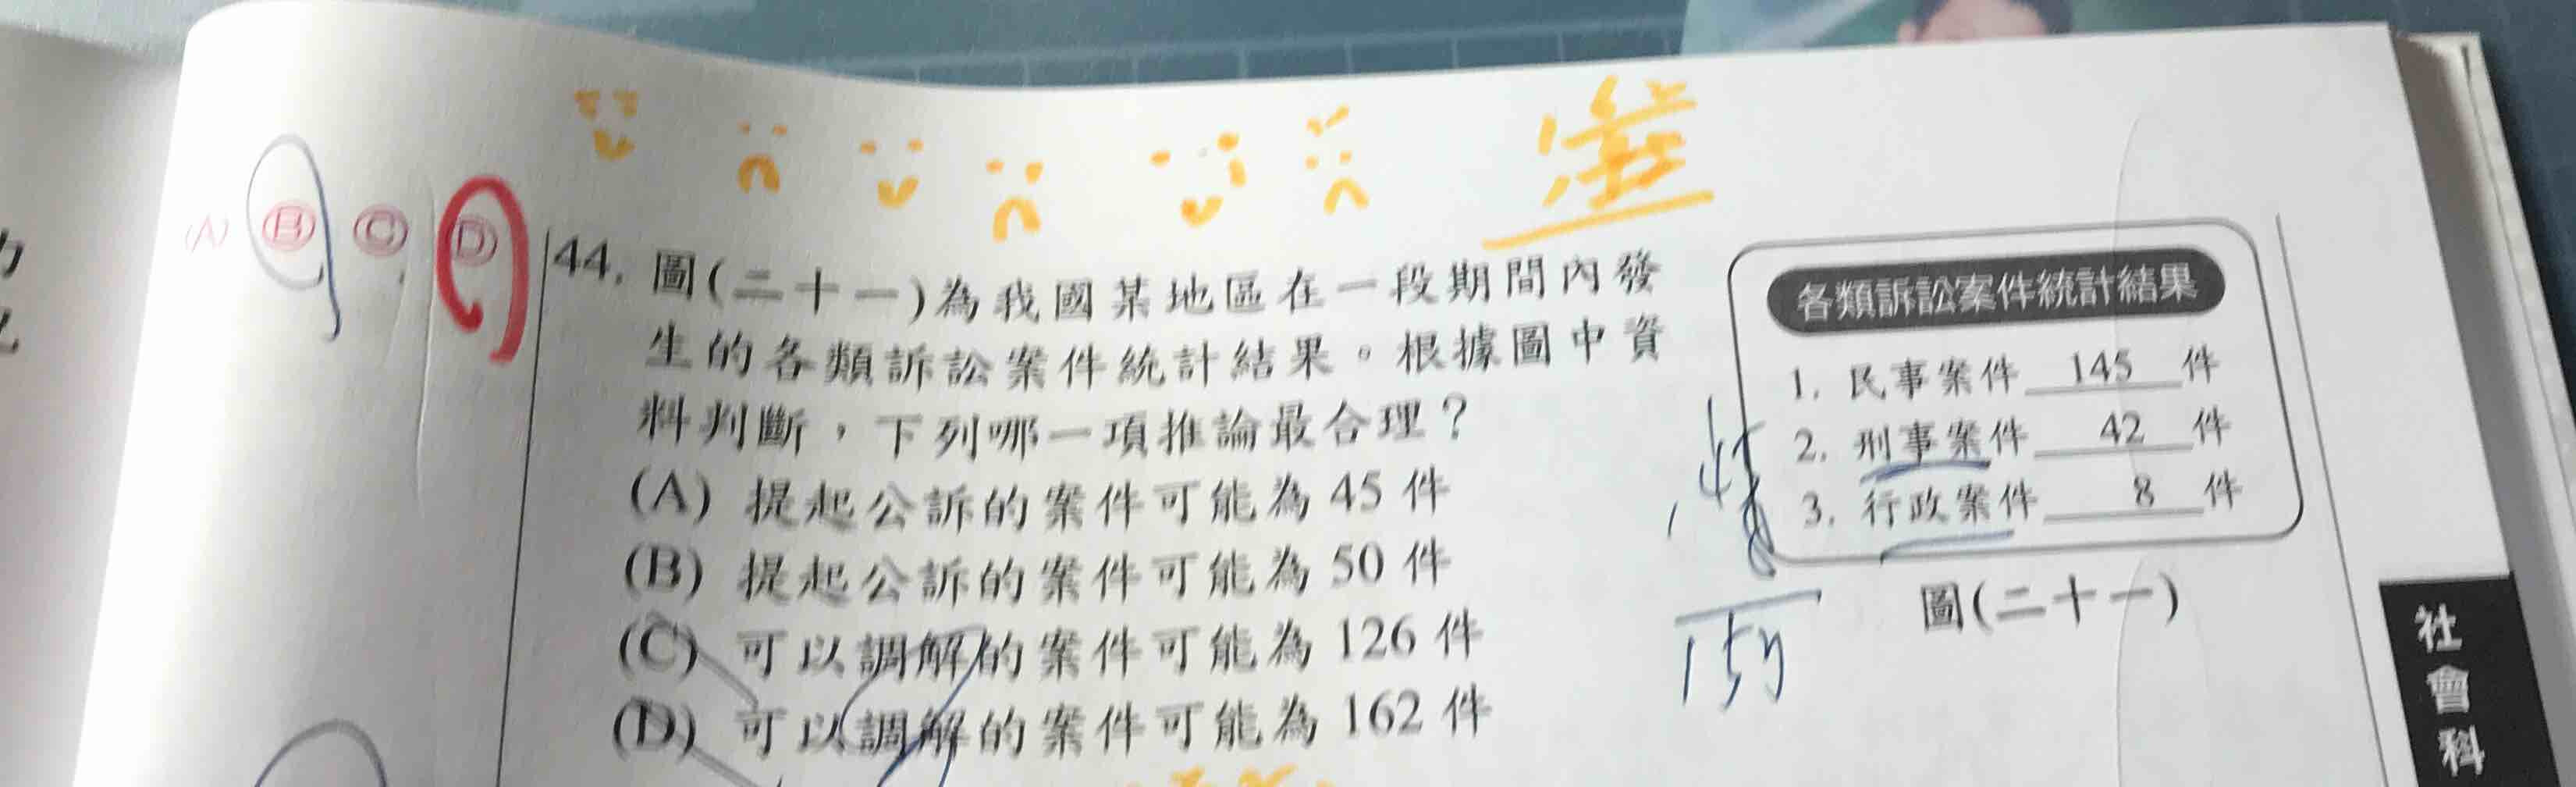 (A) (B) (C) (D)
44. 圖(二十一)為我國某地區在一段期間內發
生的各類訴訟案件統計結果。根據圖中資
料判斷，下列哪一項推論最合理？
(A) 提起公訴的案件可能為 45 件
(B) 提起公訴的案件可能為 50 件
(C) 可以調解的案件可能為 126 件
(D) 可以調解的案件可能為 162 件
各類訴訟案件統計結果
1. 民事案件 145 件
2. 刑事案件 42 件
3. 行政案件 8 件
圖(二十一)
145
8
153
社會科